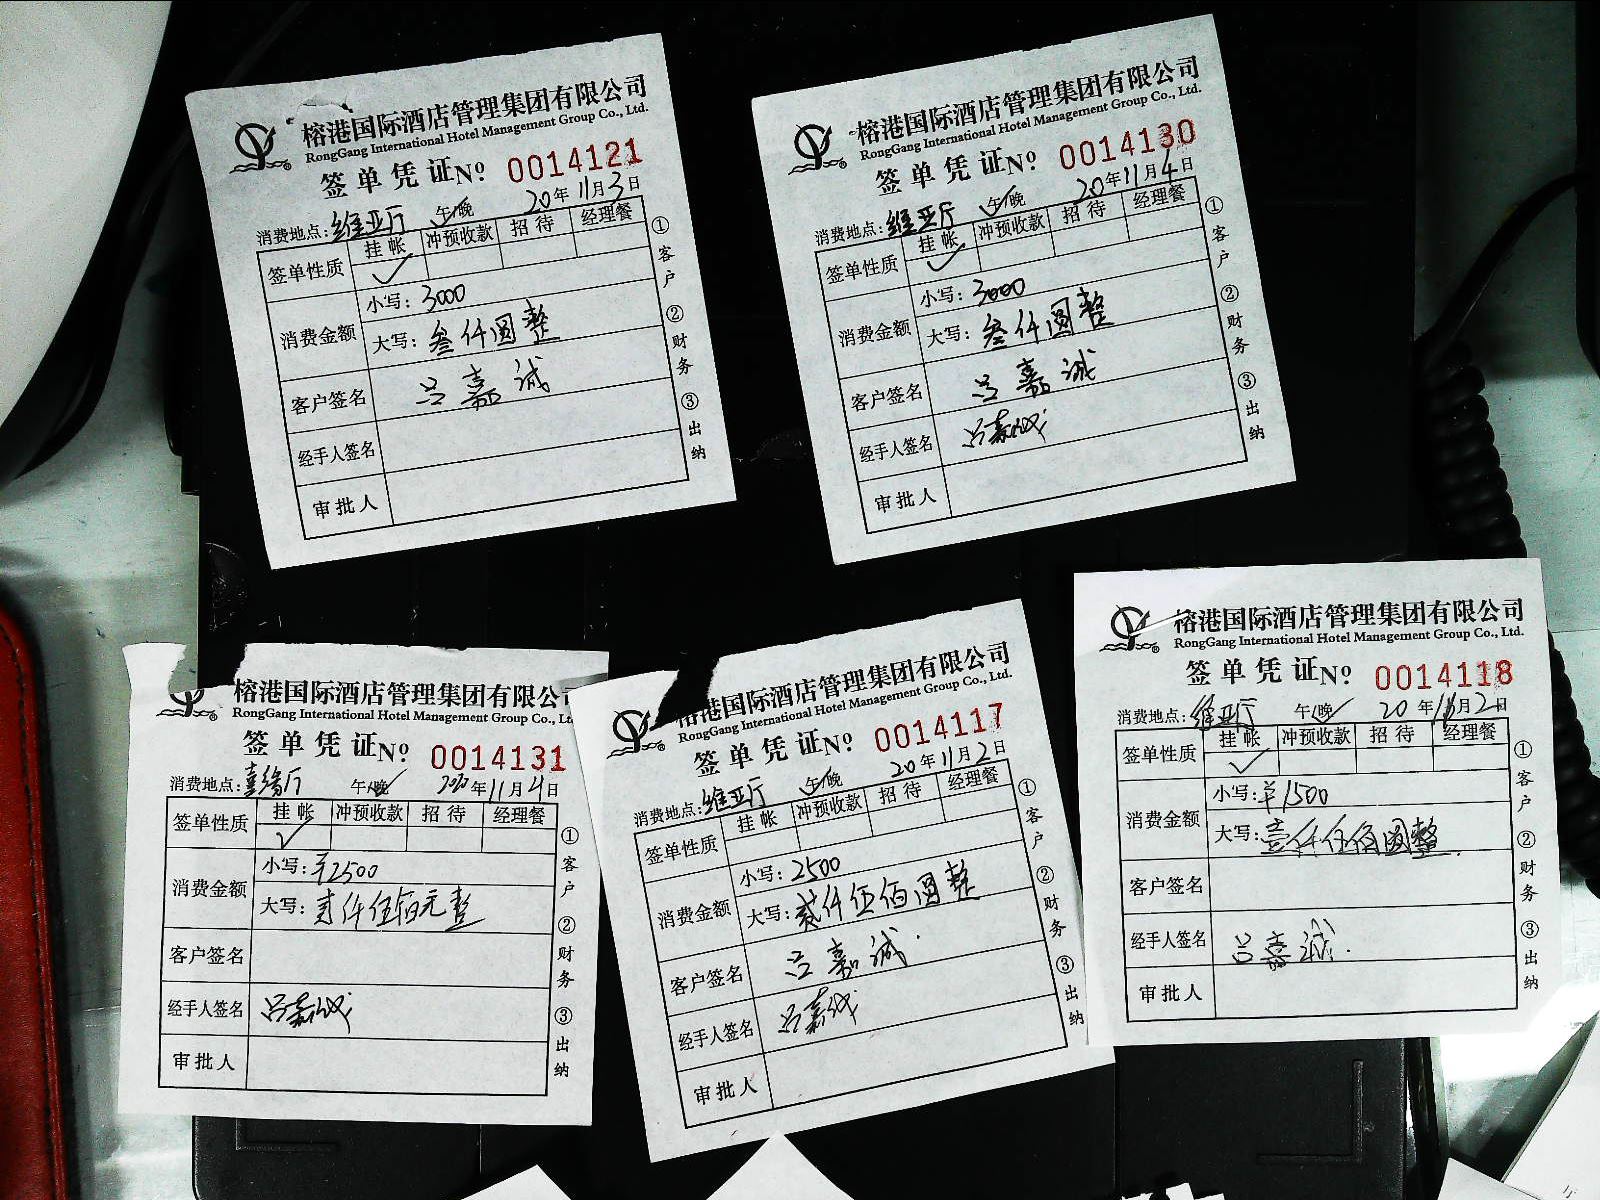 榕港国际酒店管理集团有限公司
RongGang International Hotel Management Group Co., Ltd.
签单凭证No 0014121
20年11月3日
消费地点:维亚厅 午/晚
签单性质 挂帐 冲预收款 招待 经理餐
小写:3000
消费金额
大写:叁仟圆整
客户签名 吕嘉诚
经手人签名
审批人
①客户 ②财务 ③出纳
榕港国际酒店管理集团有限公司
RongGang International Hotel Management Group Co., Ltd.
签单凭证No 0014130
20年11月4日
消费地点:维亚厅 午/晚
签单性质 挂帐 冲预收款 招待 经理餐
小写:3000
消费金额
大写:叁仟圆整
客户签名 吕嘉诚
经手人签名 吕嘉诚
审批人
①客户 ②财务 ③出纳
榕港国际酒店管理集团有限公
RongGang International Hotel Management Group Co., Lt
签单凭证No 0014131
消费地点: 午/晚 2020年11月4日
签单性质 挂帐 冲预收款 招待 经理餐
小写:¥2500
消费金额
大写:贰仟伍佰元整
客户签名
经手人签名 吕嘉诚
审批人
①客户 ②财务 ③出纳
榕港国际酒店管理集团有限公司
RongGang International Hotel Management Group Co., Ltd.
签单凭证No 0014117
20年11月2日
消费地点:维亚厅 午/晚
签单性质 挂帐 冲预收款 招待 经理餐
小写:2500
消费金额
大写:贰仟伍佰圆整
客户签名 吕嘉诚
经手人签名 吕嘉诚
审批人
①客户 ②财务 ③出纳
榕港国际酒店管理集团有限公司
RongGang International Hotel Management Group Co., Ltd.
签单凭证No 0014118
消费地点:维亚厅 午/晚 20年11月2日
签单性质 挂帐 冲预收款 招待 经理餐
小写:¥1500
消费金额
大写:壹仟伍佰圆整
客户签名
经手人签名 吕嘉诚
审批人
①客户 ②财务 ③出纳